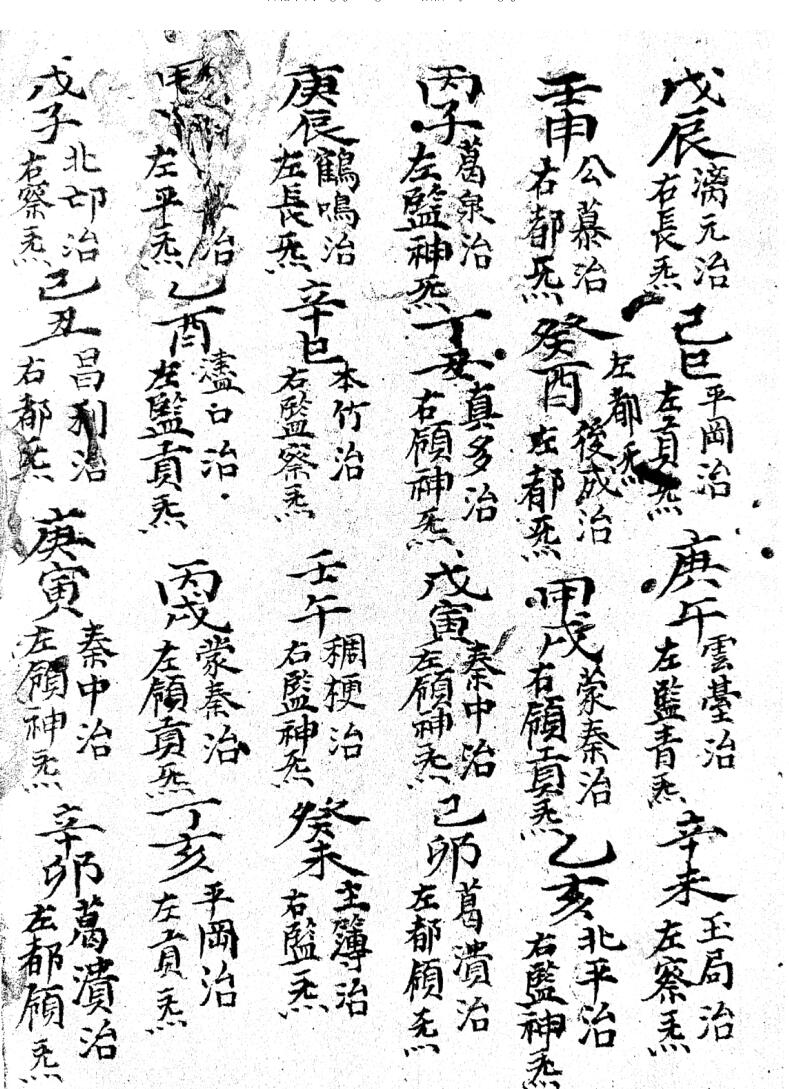 戊辰 漓元治 右長炁 己巳 平岡治 左貢炁 庚午 雲臺治 左監青炁 辛未 玉局治 左察炁
壬申 公慕治 右都炁 左都炁 癸酉 後成治 左都炁 甲戌 蒙秦治 右領貢炁 乙亥 北平治 右監神炁
丙子 葛泉治 左監神炁 丁丑 真多治 右領神炁 戊寅 秦中治 左領神炁 己卯 葛潰治 左都領炁
庚辰 鶴鳴治 左長炁 辛巳 本竹治 右監察炁 壬午 稠梗治 右監神炁 癸未 主簿治 右監炁
甲 治 左平炁 乙酉 治 左監貢炁 丙戌 蒙秦治 左領貢炁 丁亥 平岡治 左貢炁
戊子 北邙治 右察炁 己丑 昌利治 右都炁 庚寅 秦中治 左領神炁 辛卯 葛潰治 左都領炁